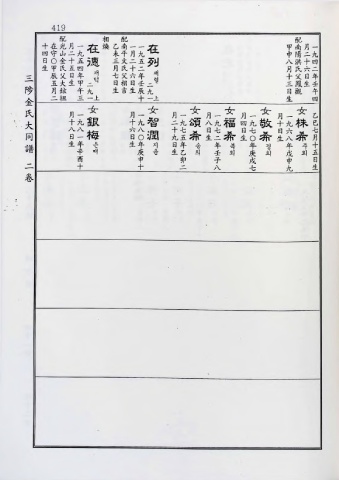 419
一九四二年壬午四
月二十六日生
配南陽洪氏父鳳觀
甲申八月十三日生
在列 재렬 二九一上
一九五二年壬辰十
一月二十六日生
配南平文氏父相吉
乙未三月七日生
相煥
在德 재덕 二九一上
一九五四年甲午三
月二十五日生
配光山金氏父大鉉祖
在守〇甲辰五月二
十四日生
乙巳七月十五日生
女 株希 주희
一九六八年戊申九
月十日生
女 敬希 경희
一九七〇年庚戌七
月四日生
女 福希 복희
一九七二年壬子八
月八日生
女 頌希 송희
一九七五年乙卯二
月二十九日生
女 智潤 지윤
一九八〇年庚申十
月十六日生
女 銀梅 은매
一九八一年辛酉十
月十八日生
三陟金氏大同譜 二卷